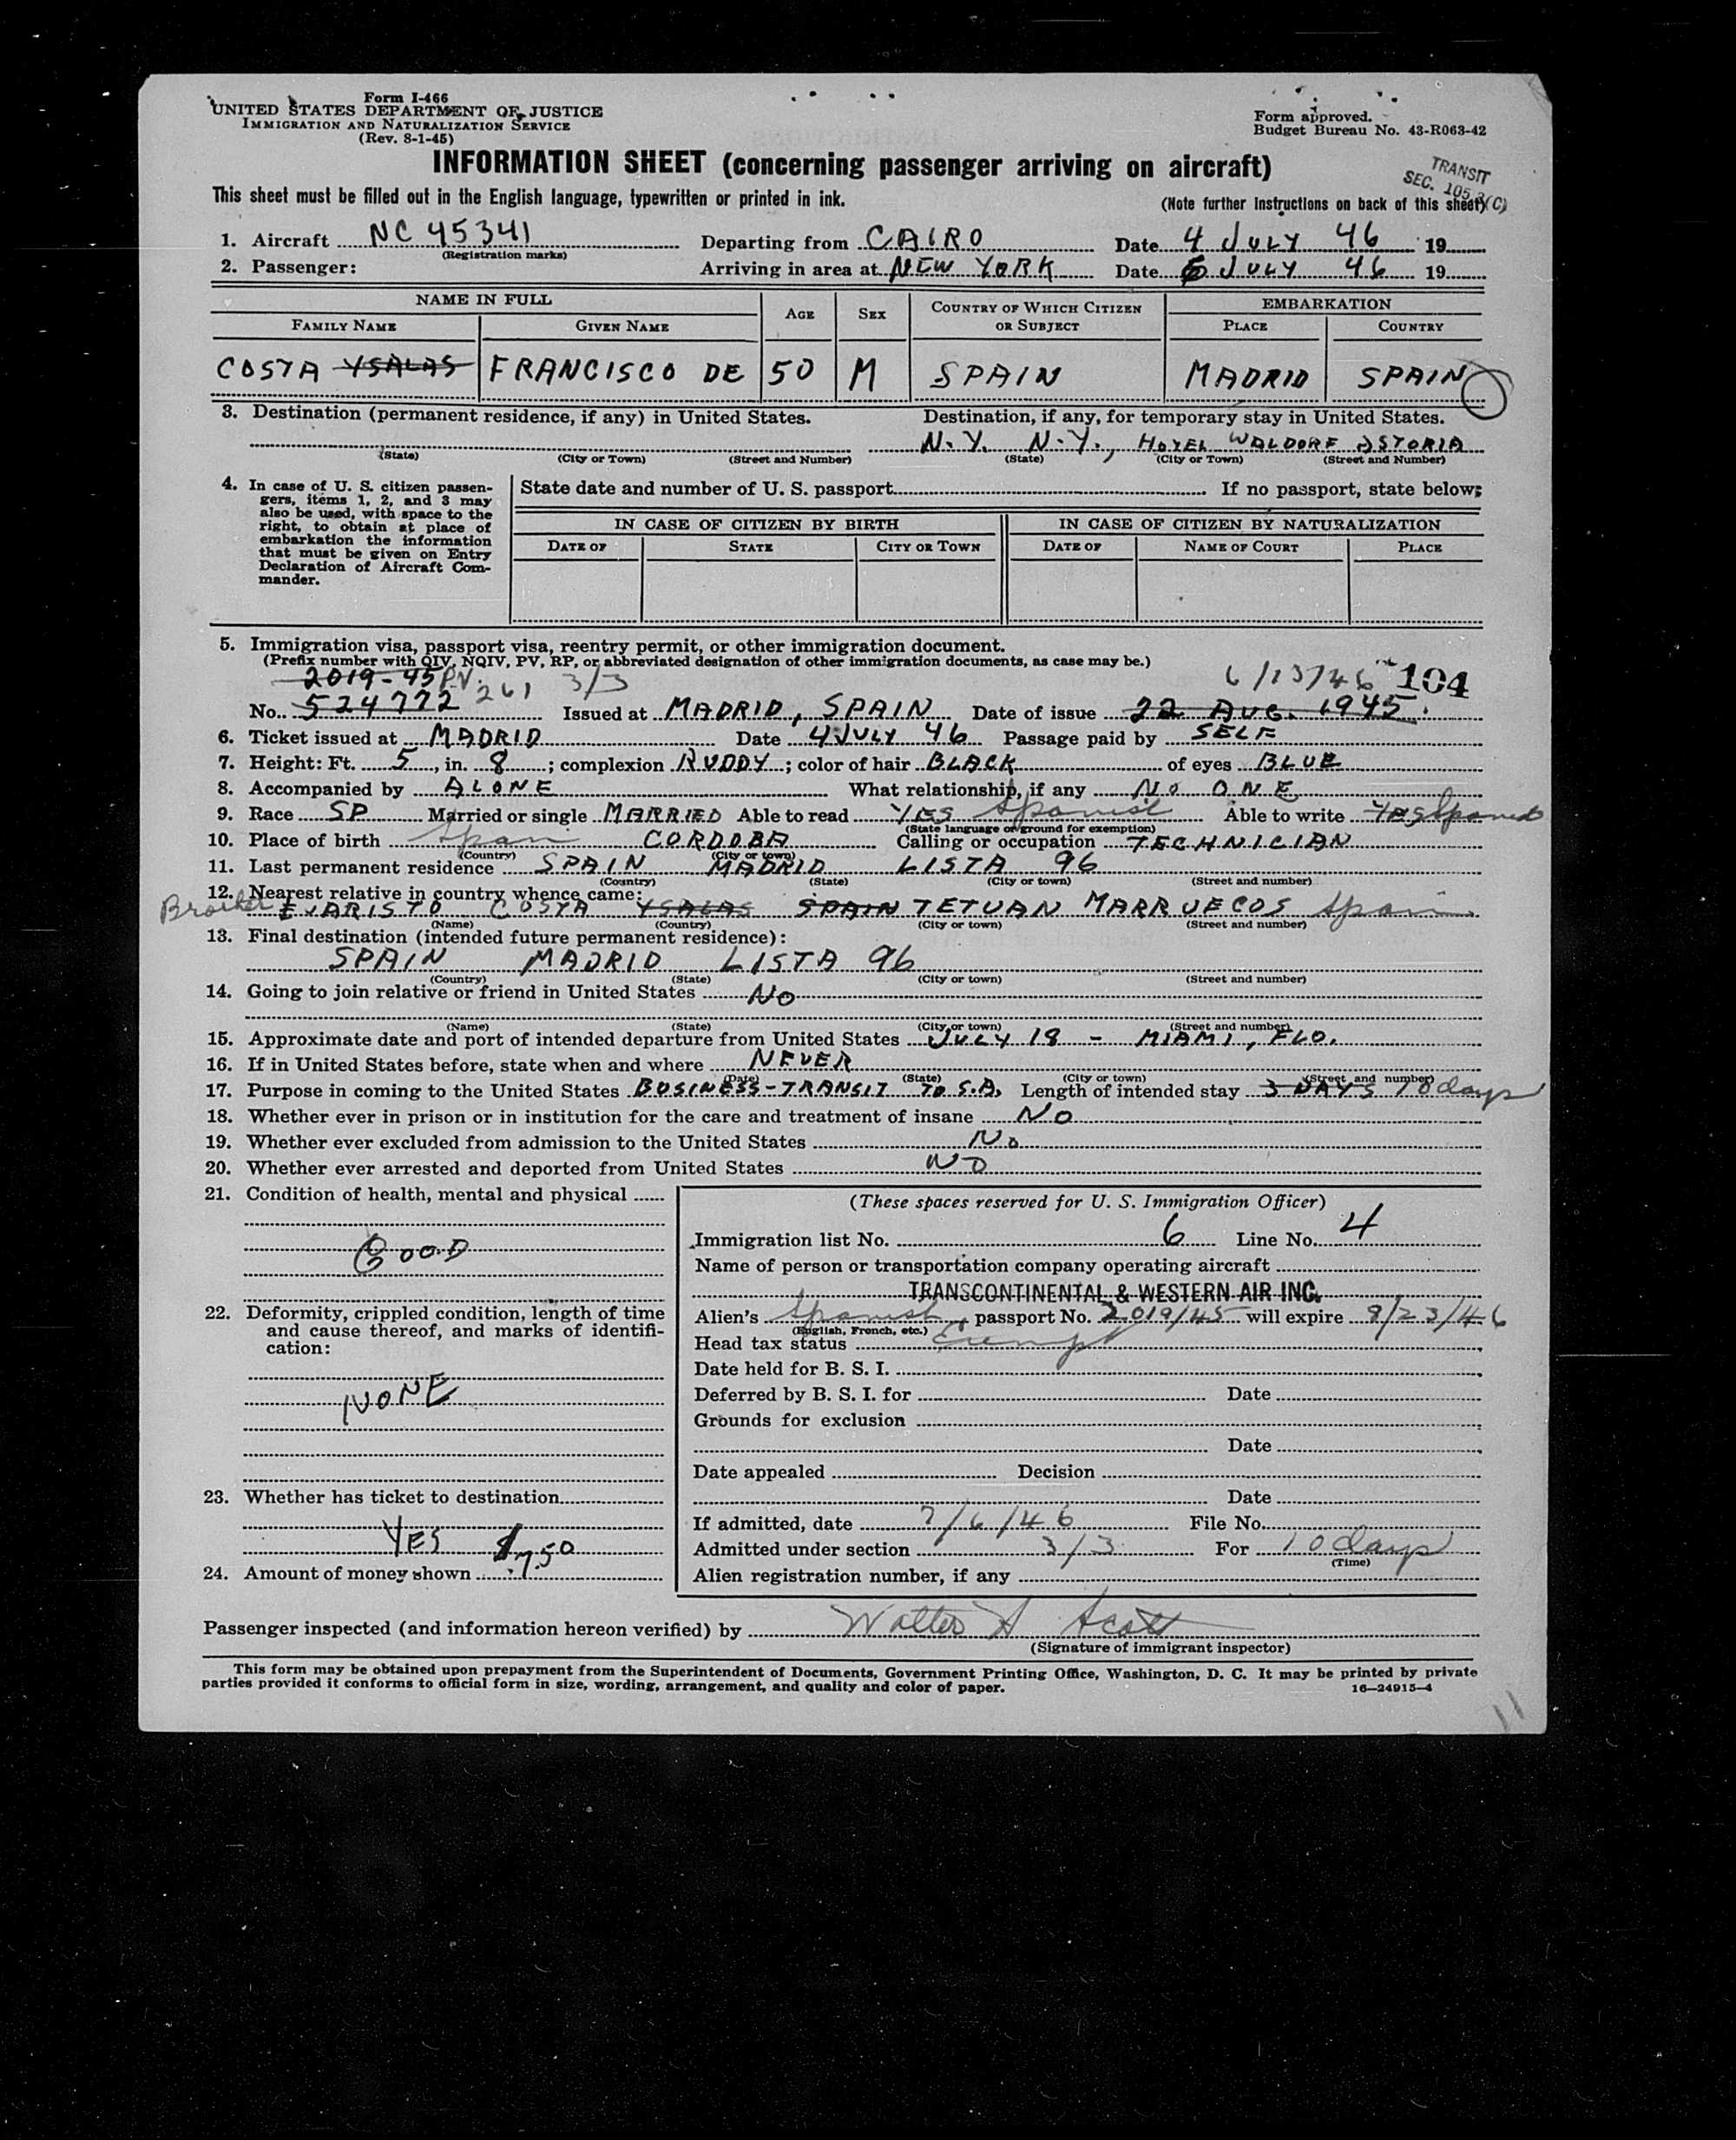 Form I-466
UNITED STATES DEPARTMENT OF JUSTICE
IMMIGRATION AND NATURALIZATION SERVICE
(Rev. 8-1-45)
Form approved.
Budget Bureau No. 43-R063-42
INFORMATION SHEET (concerning passenger arriving on aircraft)
TRANSIT
SEC. 105.3(C)
This sheet must be filled out in the English language, typewritten or printed in ink.
(Note further instructions on back of this sheet)
1. Aircraft NC 45341 Departing from CAIRO Date 4 JULY 46 19
(Registration marks)
2. Passenger: Arriving in area at NEW YORK Date 6 JULY 46 19
NAME IN FULL AGE SEX COUNTRY OF WHICH CITIZEN OR SUBJECT EMBARKATION
FAMILY NAME GIVEN NAME PLACE COUNTRY
COSTA YSALAS FRANCISCO DE 50 M SPAIN MADRID SPAIN
3. Destination (permanent residence, if any) in United States. Destination, if any, for temporary stay in United States.
N.Y. N.Y., HOTEL WALDORF ASTORIA
(State) (City or Town) (Street and Number) (State) (City or Town) (Street and Number)
4. In case of U. S. citizen passen-
gers, items 1, 2, and 3 may
also be used, with space to the
right, to obtain at place of
embarkation the information
that must be given on Entry
Declaration of Aircraft Com-
mander.
State date and number of U. S. passport If no passport, state below:
IN CASE OF CITIZEN BY BIRTH IN CASE OF CITIZEN BY NATURALIZATION
DATE OF STATE CITY OR TOWN DATE OF NAME OF COURT PLACE
5. Immigration visa, passport visa, reentry permit, or other immigration document.
(Prefix number with QIV, NQIV, PV, RP, or abbreviated designation of other immigration documents, as case may be.)
2019-45 PV. 261 3/3 6/13/46 104
No. 524772 Issued at MADRID, SPAIN Date of issue 22 AUG. 1945.
6. Ticket issued at MADRID Date 4 JULY 46 Passage paid by SELF
7. Height: Ft. 5, in. 8; complexion RUDDY; color of hair BLACK of eyes BLUE
8. Accompanied by ALONE What relationship, if any NO ONE
9. Race SP Married or single MARRIED Able to read YES Spanish Able to write YES Spanish
(State language or ground for exemption)
10. Place of birth Spain CORDOBA Calling or occupation TECHNICIAN
(Country) (City or town)
11. Last permanent residence SPAIN MADRID LISTA 96
(Country) (State) (City or town) (Street and number)
12. Nearest relative in country whence came:
Brother EVARISTO COSTA YSALAS SPAIN TETUAN MARRUECOS Spain
(Name) (Country) (City or town) (Street and number)
13. Final destination (intended future permanent residence):
SPAIN MADRID LISTA 96
(Country) (State) (City or town) (Street and number)
14. Going to join relative or friend in United States NO
(Name) (State) (City or town) (Street and number)
15. Approximate date and port of intended departure from United States JULY 18 - MIAMI, FLO.
16. If in United States before, state when and where NEVER
(Date) (State) (City or town) (Street and number)
17. Purpose in coming to the United States BUSINESS-TRANSIT TO S.A. Length of intended stay 3 DAYS 10 days
18. Whether ever in prison or in institution for the care and treatment of insane NO
19. Whether ever excluded from admission to the United States No
20. Whether ever arrested and deported from United States NO
21. Condition of health, mental and physical
GOOD
22. Deformity, crippled condition, length of time
and cause thereof, and marks of identifi-
cation:
NONE
23. Whether has ticket to destination
YES
24. Amount of money shown $750
(These spaces reserved for U. S. Immigration Officer)
Immigration list No. 6 Line No. 4
Name of person or transportation company operating aircraft
TRANSCONTINENTAL & WESTERN AIR INC.
Alien's Spanish, passport No. 2019/45 will expire 8/23/46
(English, French, etc.)
Head tax status Exempt
Date held for B. S. I.
Deferred by B. S. I. for Date
Grounds for exclusion
Date
Date appealed Decision
Date
If admitted, date 7/6/46 File No.
Admitted under section 3/3 For 10 days
(Time)
Alien registration number, if any
Passenger inspected (and information hereon verified) by Walter A Scott
(Signature of immigrant inspector)
This form may be obtained upon prepayment from the Superintendent of Documents, Government Printing Office, Washington, D. C. It may be printed by private
parties provided it conforms to official form in size, wording, arrangement, and quality and color of paper.
16—24915-4
11